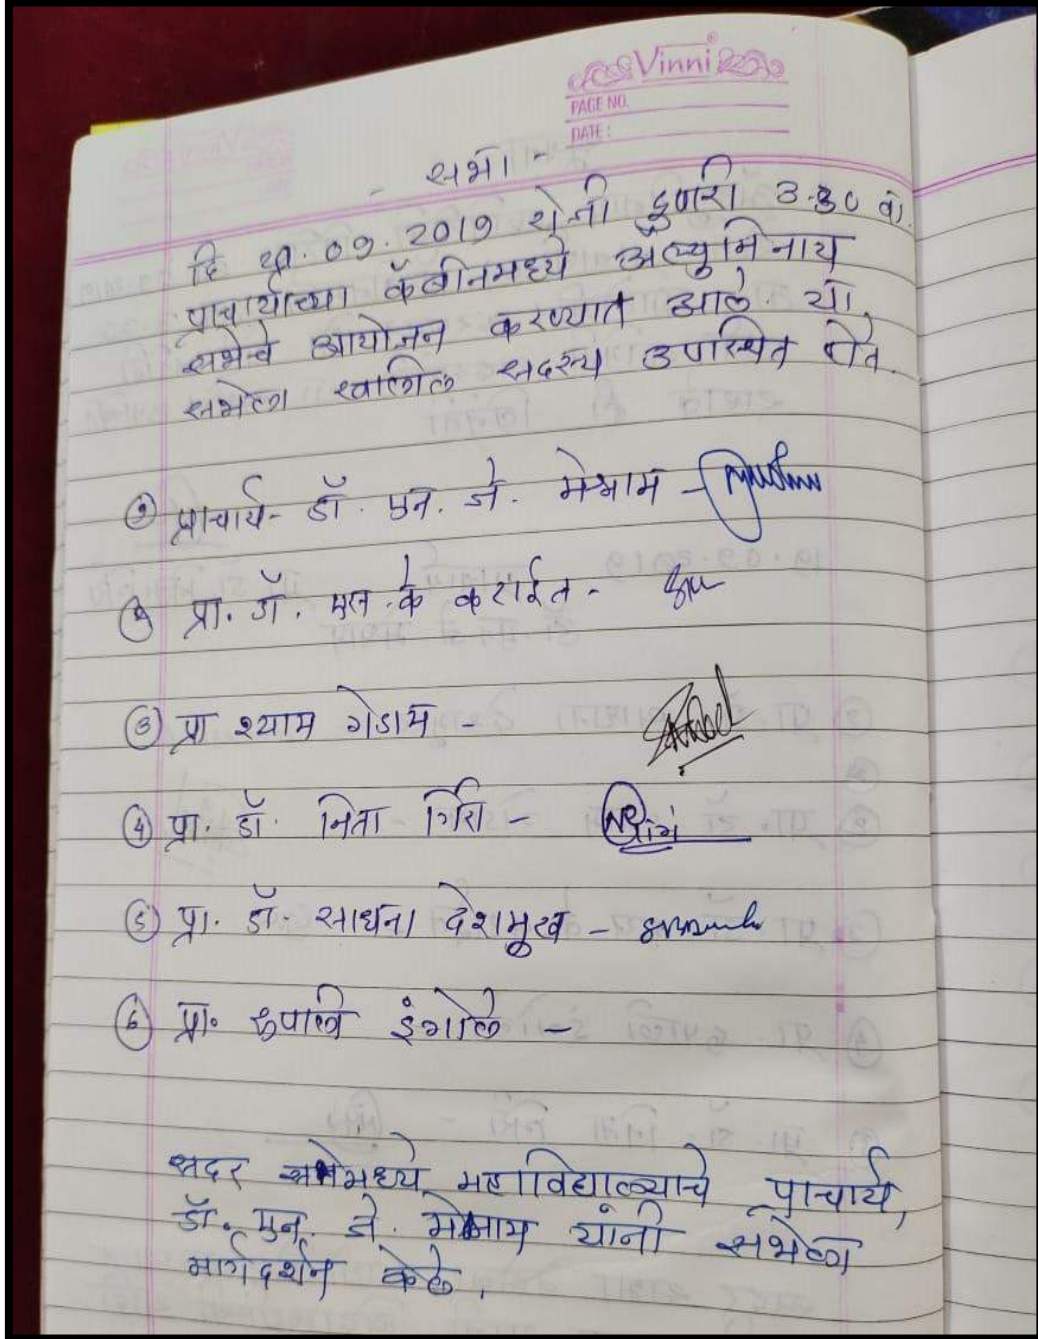 Vinni
PAGE NO.
DATE:
- सभा -
दि .09.2019 रोजी दुपारी 3.30 वा.
प्राचार्यांच्या कॅबीनमध्ये अल्युमिनाय
सभेचे आयोजन करण्यात आले. या
सभेला खालील सदस्य उपस्थित होते.
① प्राचार्य- डॉ. एन. जे. मेश्राम -
② प्रा. डॉ. एस. के कटाईत -
③ प्रा श्याम गेडाम -
④ प्रा. डॉ. निता गिरी -
⑤ प्रा. डॉ. साधना देशमुख -
⑥ प्रा. रुपाली इंगोले -
सदर सभेमध्ये महाविद्यालयाचे प्राचार्य,
डॉ. एन. जे. मेश्राम यांनी सभेला
मार्गदर्शन केले.